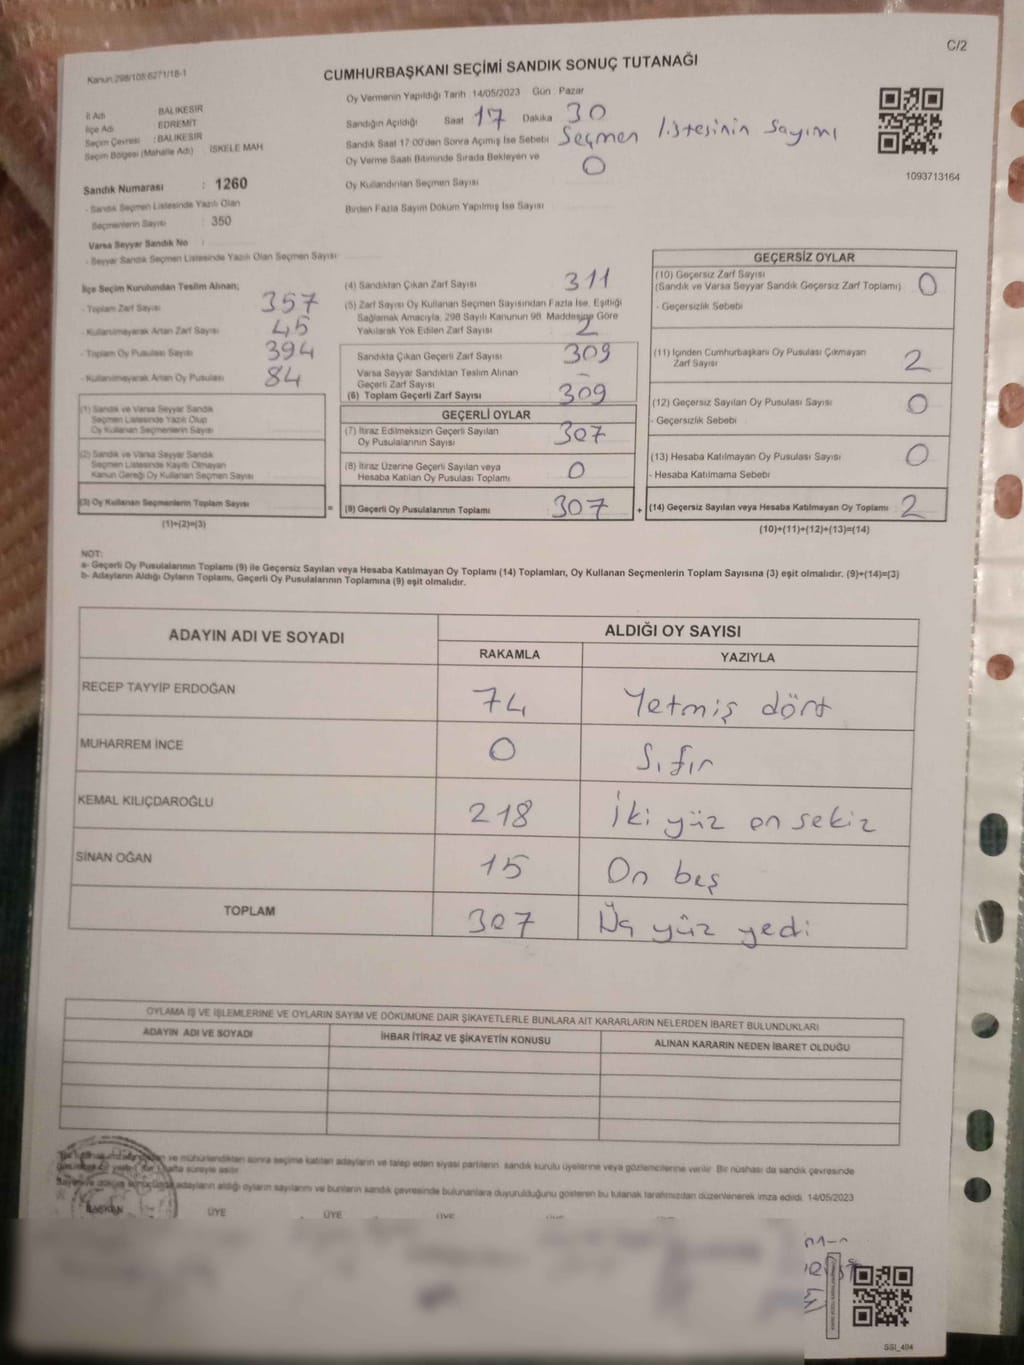 C/2
Kanun:298/108;6271/18-1
CUMHURBAŞKANI SEÇİMİ SANDIK SONUÇ TUTANAĞI
Oy Vermenin Yapıldığı Tarih :14/05/2023 Gün : Pazar
İl Adı BALIKESİR
İlçe Adı EDREMİT
Seçim Çevresi : BALIKESİR
Seçim Bölgesi (Mahalle Adı) İSKELE MAH
Sandığın Açıldığı Saat 17 Dakika 30
Sandık Saat 17:00'den Sonra Açılmış İse Sebebi Seçmen listesinin sayımı
Oy Verme Saati Bitiminde Sırada Bekleyen ve
Oy Kullandırılan Seçmen Sayısı 0
Birden Fazla Sayım Döküm Yapılmış İse Sayısı
1093713164
Sandık Numarası : 1260
- Sandık Seçmen Listesinde Yazılı Olan
Seçmenlerin Sayısı : 350
Varsa Seyyar Sandık No :
- Seyyar Sandık Seçmen Listesinde Yazılı Olan Seçmen Sayısı
İlçe Seçim Kurulundan Teslim Alınan;
- Toplam Zarf Sayısı 357
- Kullanılmayarak Artan Zarf Sayısı 45
- Toplam Oy Pusulası Sayısı 394
- Kullanılmayarak Artan Oy Pusulası 84
(1) Sandık ve Varsa Seyyar Sandık
Seçmen Listesinde Yazılı Olup
Oy Kullanan Seçmenlerin Sayısı
(2) Sandık ve Varsa Seyyar Sandık
Seçmen Listesinde Kayıtlı Olmayan
Kanun Gereği Oy Kullanan Seçmen Sayısı
(3) Oy Kullanan Seçmenlerin Toplam Sayısı =
(1)+(2)=(3)
(4) Sandıktan Çıkan Zarf Sayısı 311
(5) Zarf Sayısı Oy Kullanan Seçmen Sayısından Fazla İse, Eşitliği
Sağlamak Amacıyla, 298 Sayılı Kanunun 98. Maddesine Göre
Yakılarak Yok Edilen Zarf Sayısı 2
Sandıkta Çıkan Geçerli Zarf Sayısı 309
Varsa Seyyar Sandıktan Teslim Alınan
Geçerli Zarf Sayısı -
(6) Toplam Geçerli Zarf Sayısı 309
GEÇERLİ OYLAR
(7) İtiraz Edilmeksizin Geçerli Sayılan
Oy Pusulalarının Sayısı 307
(8) İtiraz Üzerine Geçerli Sayılan veya
Hesaba Katılan Oy Pusulası Toplamı 0
(9) Geçerli Oy Pusulalarının Toplamı 307 +
GEÇERSİZ OYLAR
(10) Geçersiz Zarf Sayısı
(Sandık ve Varsa Seyyar Sandık Geçersiz Zarf Toplamı) 0
- Geçersizlik Sebebi
(11) İçinden Cumhurbaşkanı Oy Pusulası Çıkmayan
Zarf Sayısı 2
(12) Geçersiz Sayılan Oy Pusulası Sayısı 0
- Geçersizlik Sebebi
(13) Hesaba Katılmayan Oy Pusulası Sayısı 0
- Hesaba Katılmama Sebebi
(14) Geçersiz Sayılan veya Hesaba Katılmayan Oy Toplamı 2
(10)+(11)+(12)+(13)=(14)
NOT:
a- Geçerli Oy Pusulalarının Toplamı (9) ile Geçersiz Sayılan veya Hesaba Katılmayan Oy Toplamı (14) Toplamları, Oy Kullanan Seçmenlerin Toplam Sayısına (3) eşit olmalıdır. (9)+(14)=(3)
b- Adayların Aldığı Oyların Toplamı, Geçerli Oy Pusulalarının Toplamına (9) eşit olmalıdır.
ADAYIN ADI VE SOYADI ALDIĞI OY SAYISI
RAKAMLA YAZIYLA
RECEP TAYYİP ERDOĞAN 74 Yetmiş dört
MUHARREM İNCE 0 Sıfır
KEMAL KILIÇDAROĞLU 218 İki yüz on sekiz
SİNAN OĞAN 15 On beş
TOPLAM 307 Üç yüz yedi
OYLAMA İŞ VE İŞLEMLERİNE VE OYLARIN SAYIM VE DÖKÜMÜNE DAİR ŞİKAYETLERLE BUNLARA AİT KARARLARIN NELERDEN İBARET BULUNDUKLARI
ADAYIN ADI VE SOYADI İHBAR İTİRAZ VE ŞİKAYETİN KONUSU ALINAN KARARIN NEDEN İBARET OLDUĞU
ve mühürlendikten sonra seçime katılan adayların ve talep eden siyasi partilerin sandık kurulu üyelerine veya gözlemcilerine verilir. Bir nüshası da sandık çevresinde
hafta süreyle asılır.
adayların aldığı oyların sayılarını ve bunların sandık çevresinde bulunanlara duyurulduğunu gösteren bu tutanak tarafımızdan düzenlenerek imza edildi. 14/05/2023
BAŞKAN ÜYE ÜYE ÜYE
SSI_494